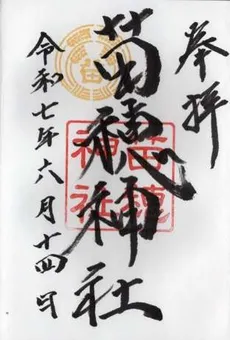 奉拝
苗穂神社
苗穂
神社
令和七年六月十四日